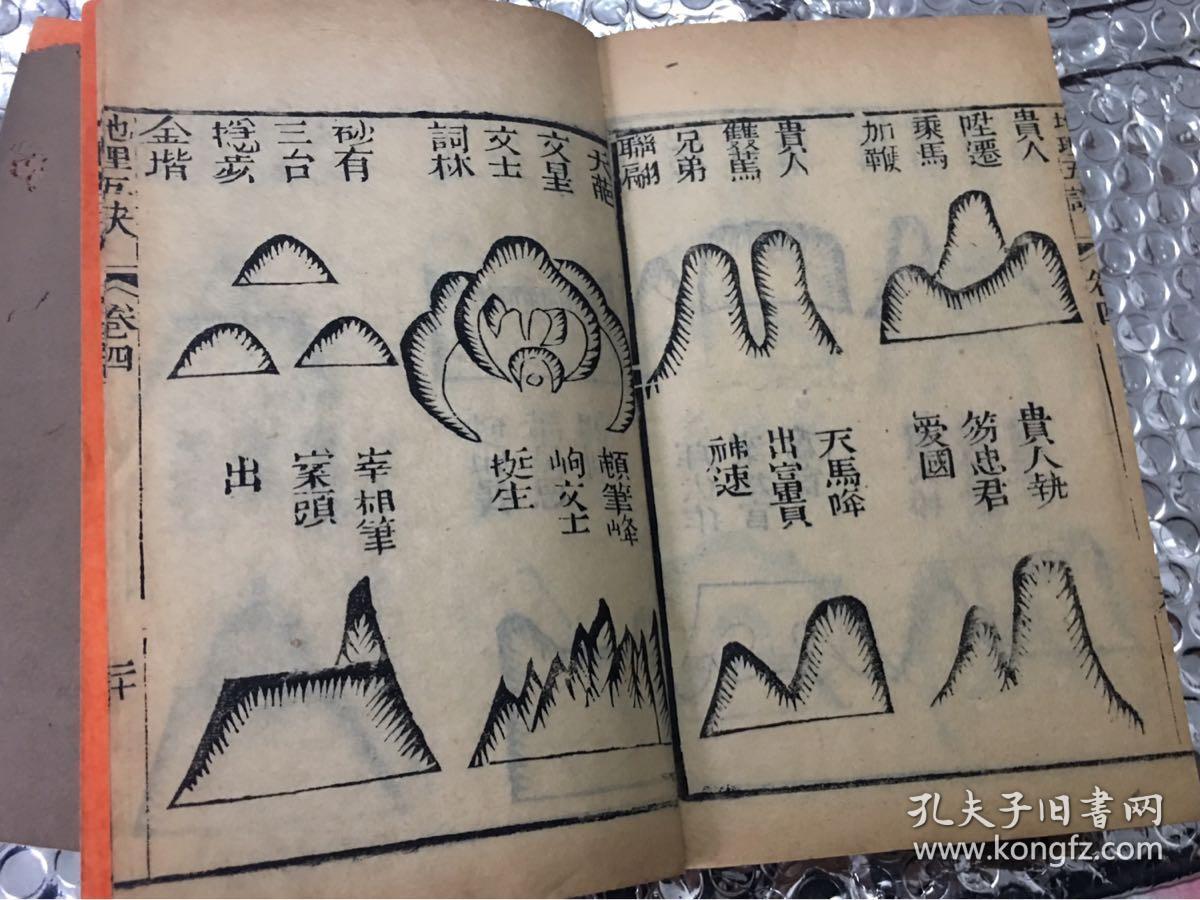 貴人
陞遷
乘馬
加鞭
貴人
雙薦
兄弟
聯翩
貴人執
笏忠君
愛國
天馬降
出富貴
神速
天葩
文星
文士
詞林
砂有
三台
穏步
金堦
頓筆峰
峋文士
挺生
宰相筆
案頭
出
地理五訣
卷四
二十
卷四
孔夫子旧書网
www.kongfz.com